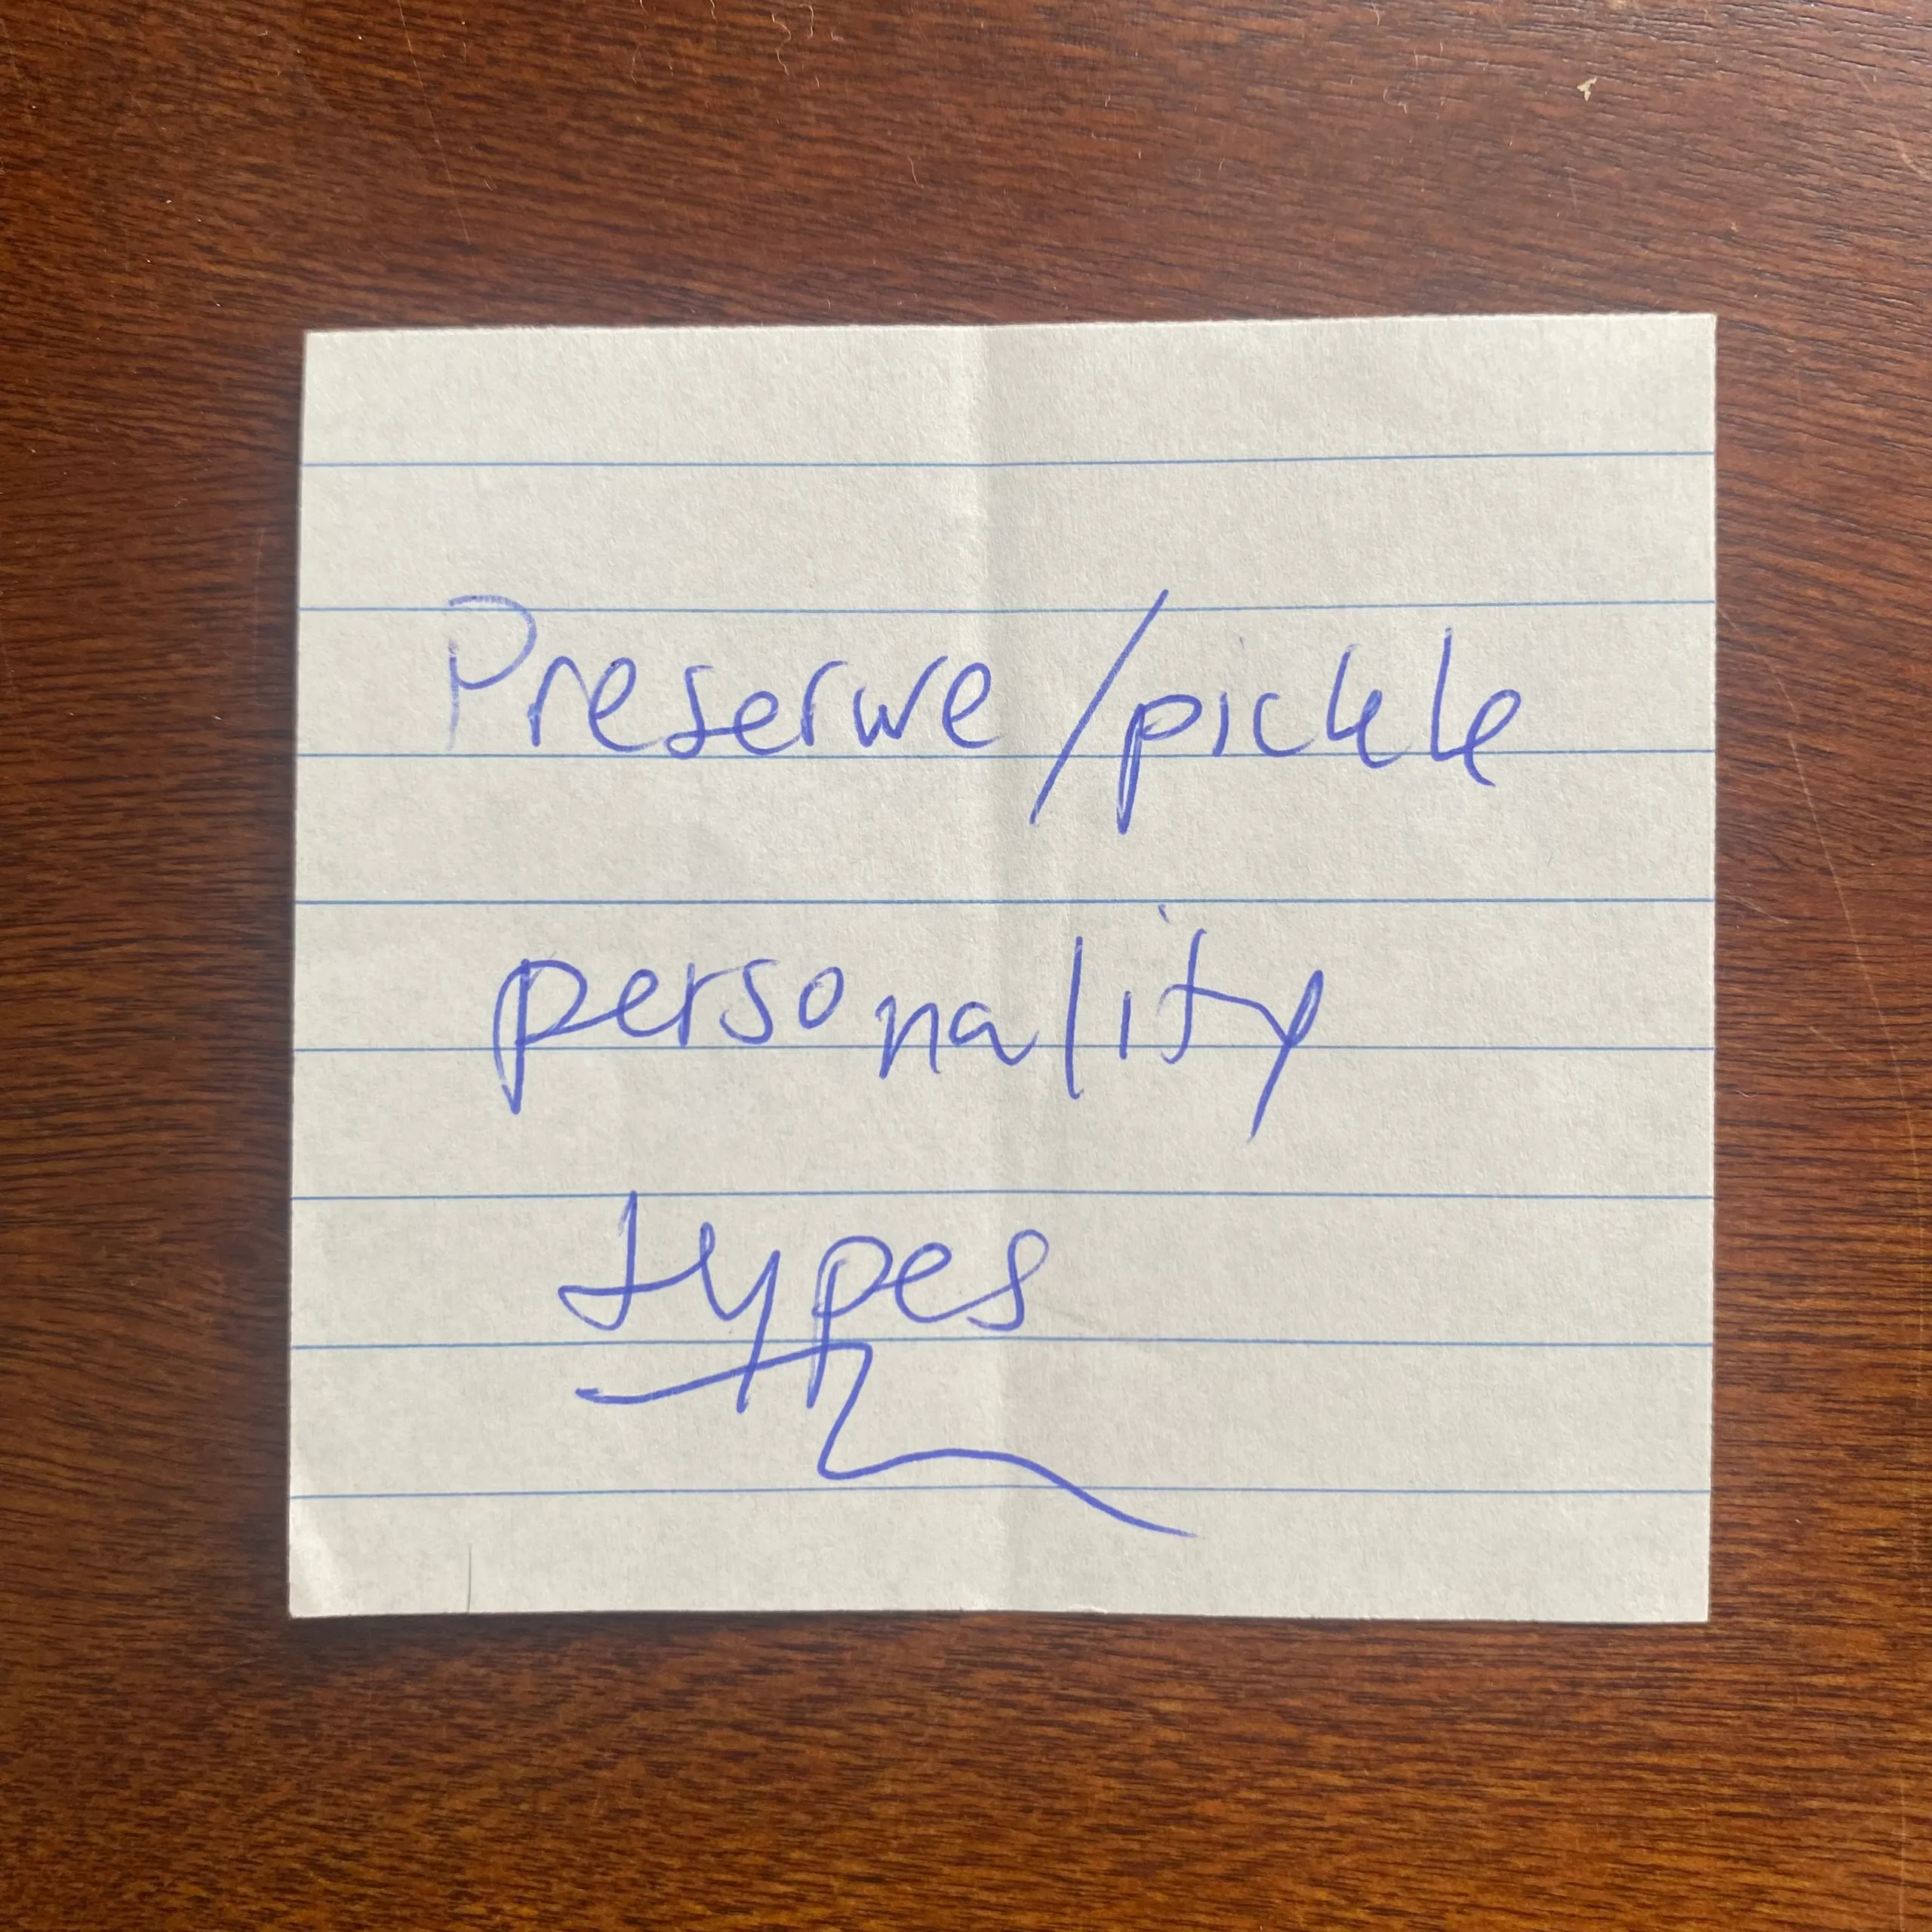 Preserve/pickle
personality
types